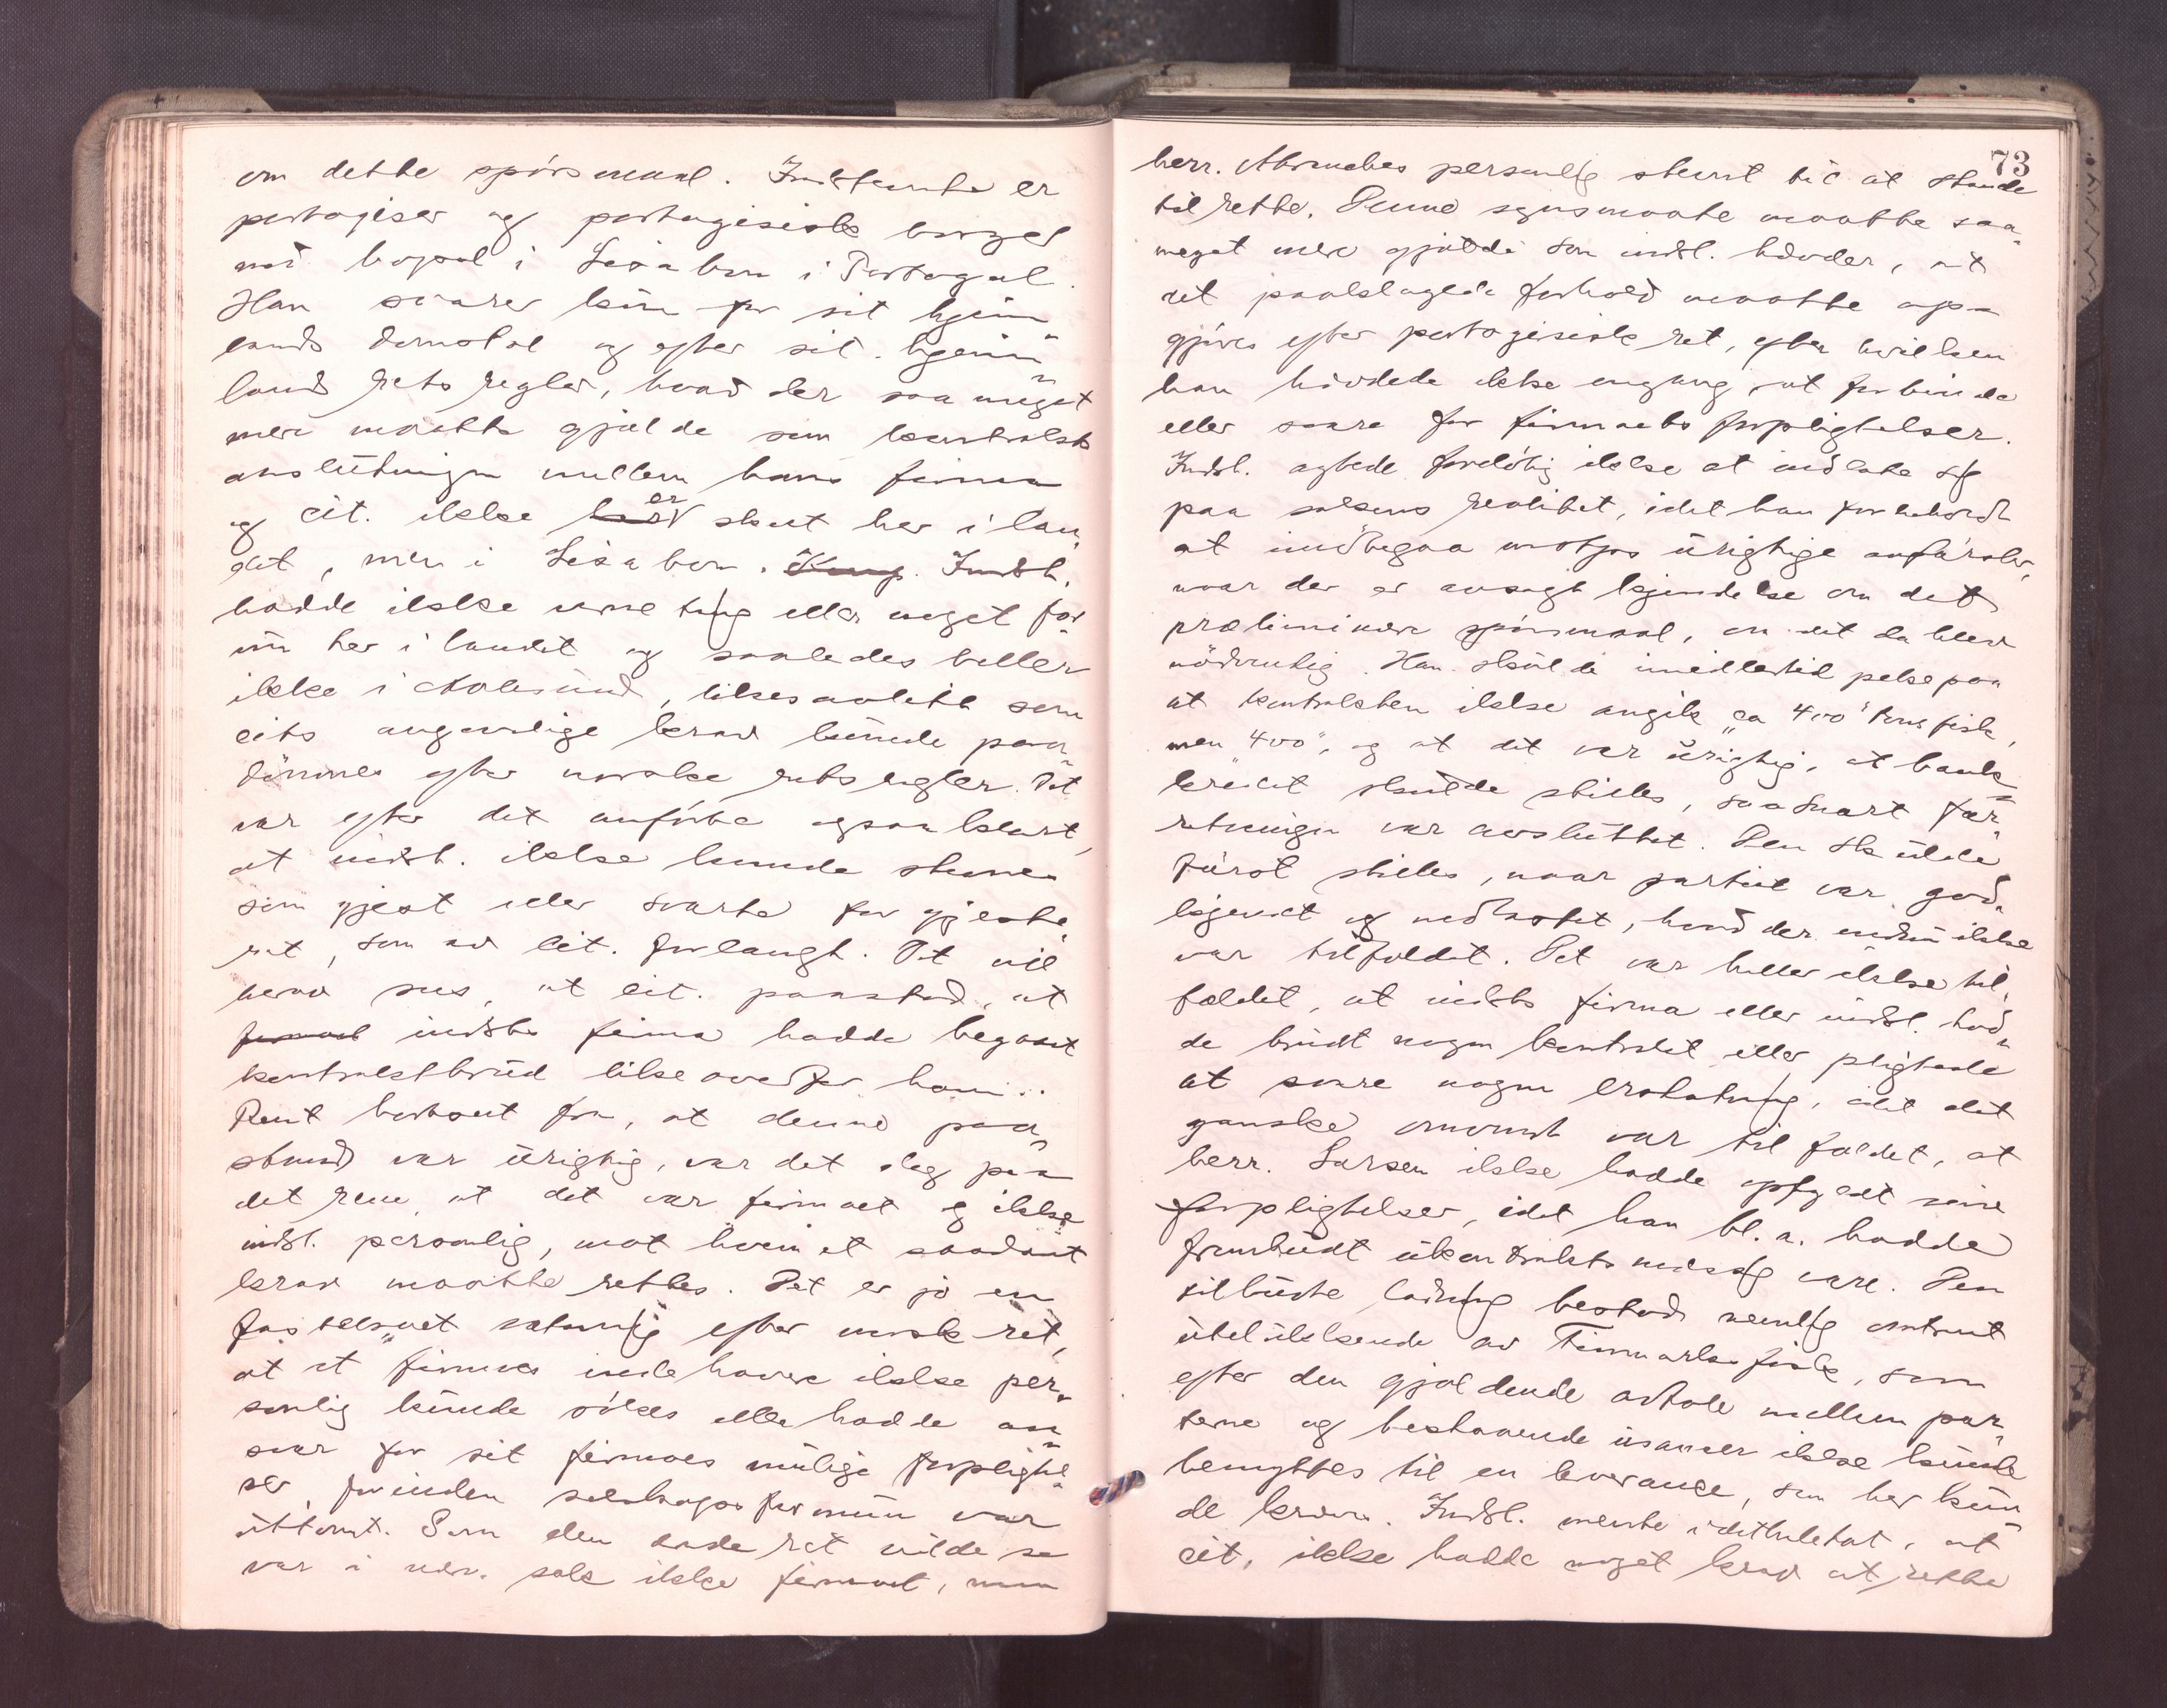 om dette spörsmaal. Indstevnte er
portogiser og portogisisk borger
med bopæl i Lissabon i Portogal.
Han svarer kun for sit hjem
lands domstol og efter sit hjem„
lands rets regler, hvad der saa meget
mere maatte gjælde som kontrakts
avslutningen mellem hans firma
og cit. ikke er sket her i lan„
det, men i Lissabon. Indst.
hadde ikke verneting eller noget for
um her i landet og saaledes heller
ikke i Aalesund, likesaalitt som
cits angivelige krav kunde paa„
dömmes efter norske rets regler. Det
var efter det anförte ogsaa klart,
at indst. ikke kunde stevnes
som gjest eller svarte for gjeste„
ret, som av cit. forlangt. Det vil
herav sees, at cit. paastod, at
indsts firma hadde begaaet
kontraktbrud likeoverfor ham..
Rent bortset fra, at denne paa„
stand var urigtig, var det dog paa
det rene, at det var firmaet og ikke
indst. personlig, mot hvem et saadant
krav maatte rettes. Det er jo en
fastslaaet sætning efter norsk ret,
at et firmas indehavere ikke per„
sonlig kunde sökes eller hadde an„
svar for sit firmaes mulige forpligtel„
ser forinden selskapsformuen var
uttömt. Som den sade ret vilde se
var i nærv. sak ikke firmaet, men
73
herr. Abranches personlig stevnt til at stande
til rette. Denne synsmaate maatte saa„
meget mere gjælde som indst. hævder, at
det paaklagede forhold maatte op„
gjöres efter portogisisk ret, efter hvilken
han hævdede ikke engang at forbinde
eller svare for firmaets forpligtelser.
Indst. agtede forelöbig ikke at indlate sig
paa sakens realitet, idet han forbeholdt
at imötegaa motpts urigtige anförsler,
naar der er avsagt kjendelse om det
præliminære spörsmaal, om det da blev
nödvendig. Han skulde imidlertid pekepaa
at kontrakten ikke angik „ca 400“ tons fisk,
men „400“, og at det var urigtig, at bank„
kredit skulde stilles, saasnart for„
retningen var avsluttet. Den skulde
först stilles, naar partiet var god„
kjendt og nedlastet, hvad der endnu ikke
var tilfældet. Det var heller ikke til„
fældet, at indsts firma eller indst. had„
de brudt nogen kontrakt eller pligtede
at svare nogen erstatning, idet det
ganske omvendt var tilfældet, at
herr. Larsen ikke hadde opfyldt sine
forpligtelser, idet han bl. a. hadde
frembudt ukontraktsmæssig vare. Den
tilbudte ladning bestod nemlig omtrent
utelukkende av Finmarksfisk, som
efter den gjældende avtale mellem par„
terne og bestaaende usancer ikke kunde
benyttes til en leverance, som her kun„
de kræve. Indst. mente i dethele tat, at
cit. ikke hadde noget krav at rette